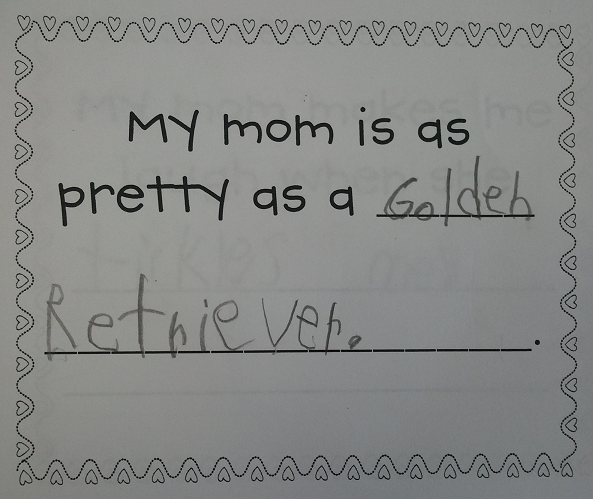 My mom is as
pretty as a Golden
Retriever. .